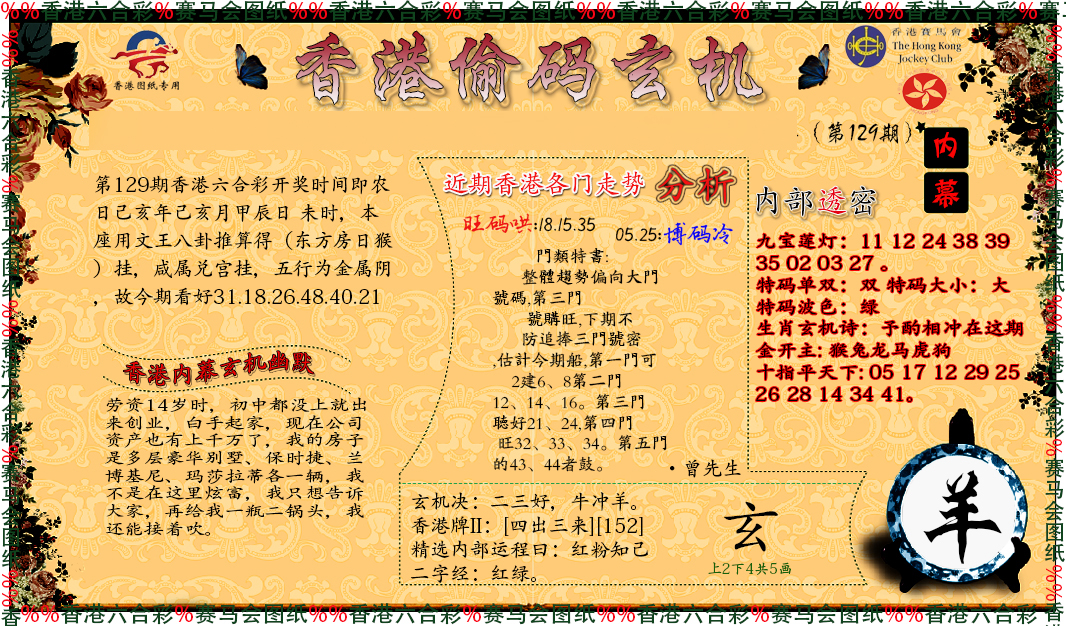 %%香港六合彩%赛马会图纸%%香港六合彩%赛马会图纸%%香港六合彩%赛马会图纸%%香港六合彩%赛
香港图纸专用
香港偷码玄机
香港賽馬會
The Hong Kong
Jockey Club
（第129期）
内
幕
第129期香港六合彩开奖时间即农
日己亥年己亥月甲辰日 未时，本
座用文王八卦推算得（东方房日猴
）挂，咸属兑宫挂，五行为金属阴
，故今期看好31.18.26.48.40.21
香港内幕玄机幽默
劳资14岁时，初中都没上就出
来创业，白手起家，现在公司
资产也有上千万了，我的房子
是多层豪华别墅、保时捷、兰
博基尼、玛莎拉蒂各一辆，我
不是在这里炫富，我只想告诉
大家，再给我一瓶二锅头，我
还能接着吹。
近期香港各门走势 分析
旺码哄:18.15.35
05.25:博码冷
門類特書:
整體趨勢偏向大門
號碼,第三門
號購旺,下期不
防追捧三門號密
,估計今期船,第一門可
2建6、8第二門
12、14、16。第三門
聽好21、24,第四門
旺32、33、34。第五門
的43、44者鼓。
·曾先生
玄机决：二三好，牛冲羊。
香港牌II：[四出三来][152]
精选内部运程曰：红粉知己
二字经：红绿。
玄
上2下4共5画
内部透密
九宝莲灯：11 12 24 38 39
35 02 03 27 。
特码单双：双 特码大小：大
特码波色：绿
生肖玄机诗：予酌相冲在这期
金开主: 猴兔龙马虎狗
十指平天下: 05 17 12 29 25
26 28 14 34 41。
羊
香%%香港六合彩%赛马会图纸%%香港六合彩%赛马会图纸%%香港六合彩%赛马会图纸%%香港六合彩%